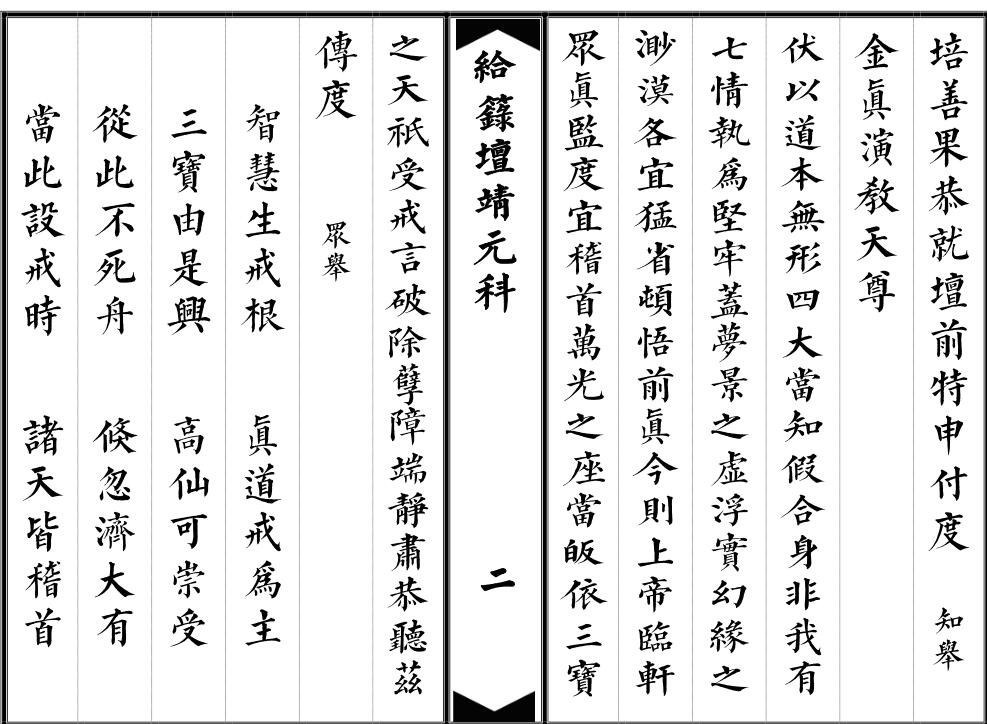 培善果恭就壇前特申付度　知舉
金眞演教天尊
伏以道本無形四大當知假合身非我有
七情執爲堅牢蓋夢景之虛浮實幻緣之
渺漠各宜猛省頓悟前眞今則上帝臨軒
眾眞監度宜稽首萬光之座當皈依三寶
給籙壇靖元科　二
之天祇受戒言破除孽障端靜肅恭聽茲
傳度　眾舉
智慧生戒根　眞道戒爲主
三寶由是興　高仙可崇受
從此不死舟　倐忽濟大有
當此設戒時　諸天皆稽首